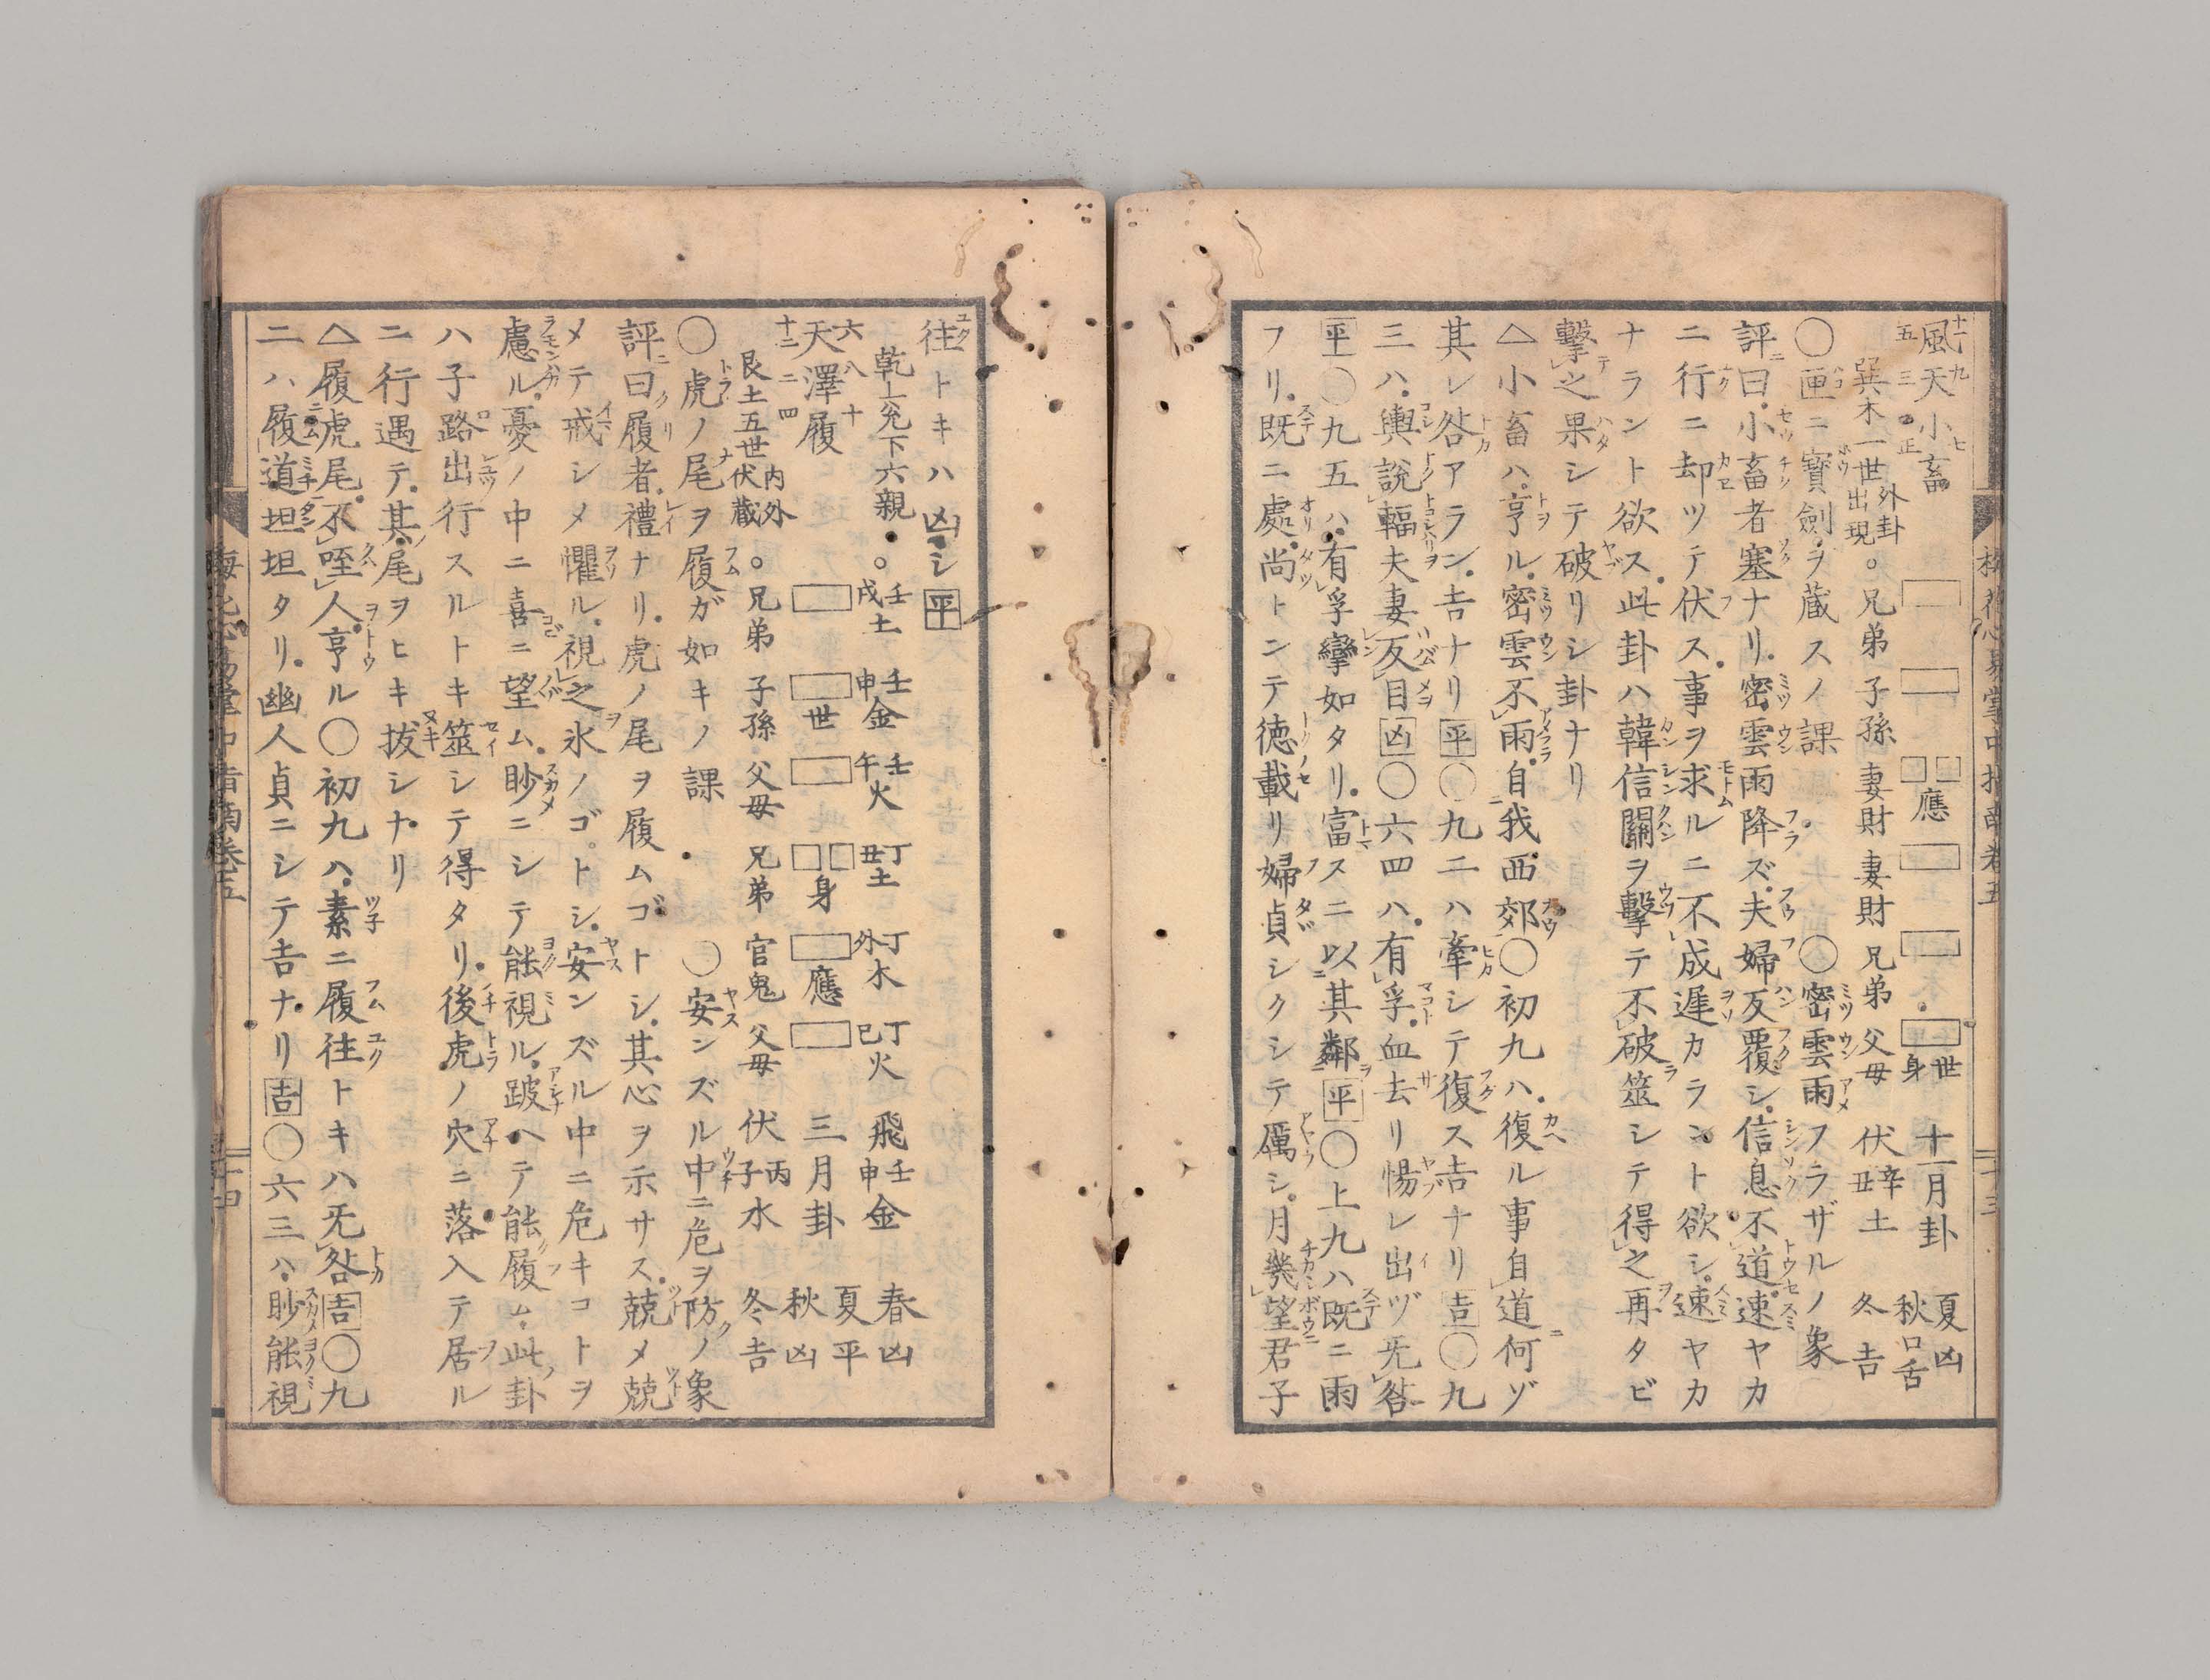 風天小畜
巽木一世 外卦出現 。兄弟 子孫 妻財 妻財 兄弟 父母 伏 辛丑土
應 世身 十一月卦 夏凶 秋口舌 冬吉
〇匣ニ寶劍ヲ蔵スノ課 〇密雲雨フラザルノ象
評曰小畜者塞ナリ密雲雨降ズ夫婦反覆シ信息不道速ヤカ
ニ行ニ却ツテ伏ス事ヲ求ルニ不成遅カラント欲シ速ヤカ
ナラント欲ス此卦ハ韓信關ヲ擊テ不破筮シテ得之再タビ
擊之果シテ破リシ卦ナリ
△小畜ハ亨ル密雲不雨自我西郊〇初九ハ復ル事自道何ゾ
其レ咎アラン吉ナリ平〇九二ハ牽シテ復ス吉ナリ吉〇九
三ハ輿説輻夫妻反目凶〇六四ハ有孚血去リ惕レ出ヅ无咎
平〇九五ハ有孚攣如タリ富スニ以其鄰平〇上九ハ既ニ雨
フリ既ニ處尚トンテ徳載リ婦貞シクシテ厲シ月幾望君子
往トキハ凶シ平
乾上兊下六親 。壬戌土 壬申金 壬午火 丁丑土 丁卯木 丁巳火 飛 壬申金 春凶
天澤履 世 身 應 三月卦 夏平 秋凶
艮土五世 内外伏蔵 。兄弟 子孫 父母 兄弟 官鬼 父母 伏 丙子水 冬吉
〇虎ノ尾ヲ履ガ如キノ課 〇安ンズル中ニ危ヲ防ノ象
評曰履者禮ナリ虎ノ尾ヲ履ムゴトシ其心ヲ示サス兢メ兢
メテ戒シメ懼ル視之氷ノゴトシ安ンズル中ニ危キコトヲ
慮ル憂ノ中ニ喜ニ望ム眇ニシテ能視ル跛ヘテ能履ム此卦
ハ子路出行スルトキ筮シテ得タリ後虎ノ穴ニ落入テ居ル
ニ行遇テ其尾ヲヒキ拔シナリ
△履虎尾不咥人亨ル〇初九ハ素ニ履往トキハ无咎吉〇九
二ハ履道坦坦タリ幽人貞ニシテ吉ナリ吉〇六三ハ眇能視